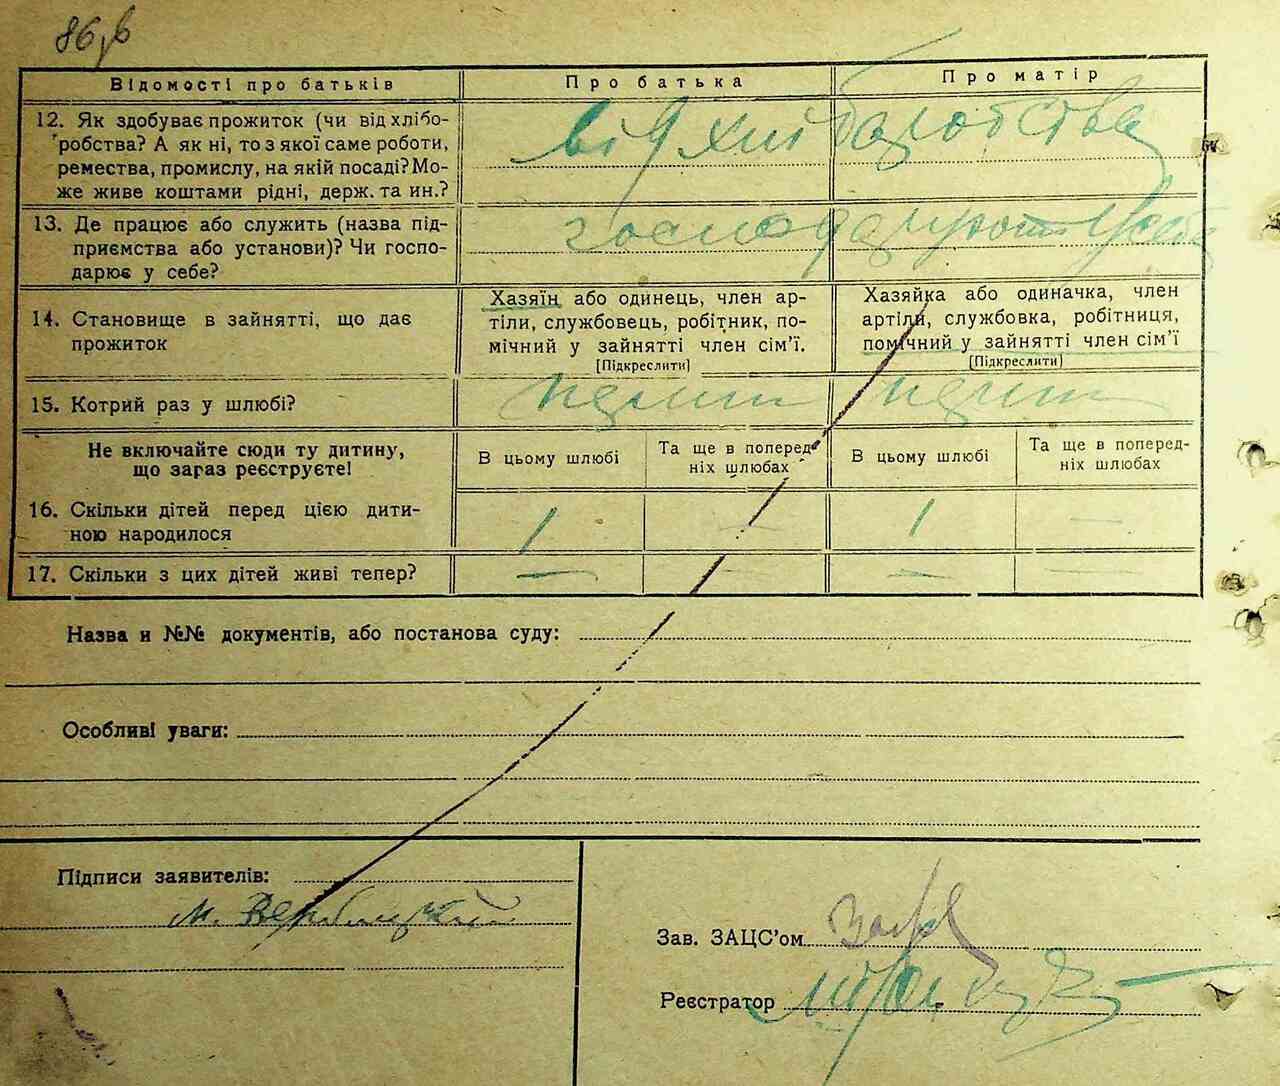 86,в
Відомості про батьків
Про батька
Про матір
12. Як здобуває прожиток (чи від хлібо-
робства? А як ні, то з якої саме роботи,
ремества, промислу, на якій посаді? Мо-
же живе коштами рідні, держ. та ин.?
від хліборобства
13. Де працює або служить (назва під-
приємства або установи)? Чи госпо-
дарює у себе?
господарюють у себе
14. Становище в зайнятті, що дає
прожиток
Хазяїн або одинець, член ар-
тіли, службовець, робітник, по-
мічний у зайнятті член сім'ї.
[Підкреслити]
Хазяйка або одиначка, член
артіли, службовка, робітниця,
помічний у зайнятті член сім'ї
[Підкреслити]
15. Котрий раз у шлюбі?
Не включайте сюди ту дитину,
що зараз реєструєте!
В цьому шлюбі
Та ще в поперед-
ніх шлюбах
В цьому шлюбі
Та ще в поперед-
ніх шлюбах
16. Скільки дітей перед цією дити-
ною народилося
1 — 1 —
17. Скільки з цих дітей живі тепер?
— — — —
Назва и №№ документів, або постанова суду:
Особливі уваги:
Підписи заявителів:
М. Вербицкий
Зав. ЗАЦС'ом
Реєстратор